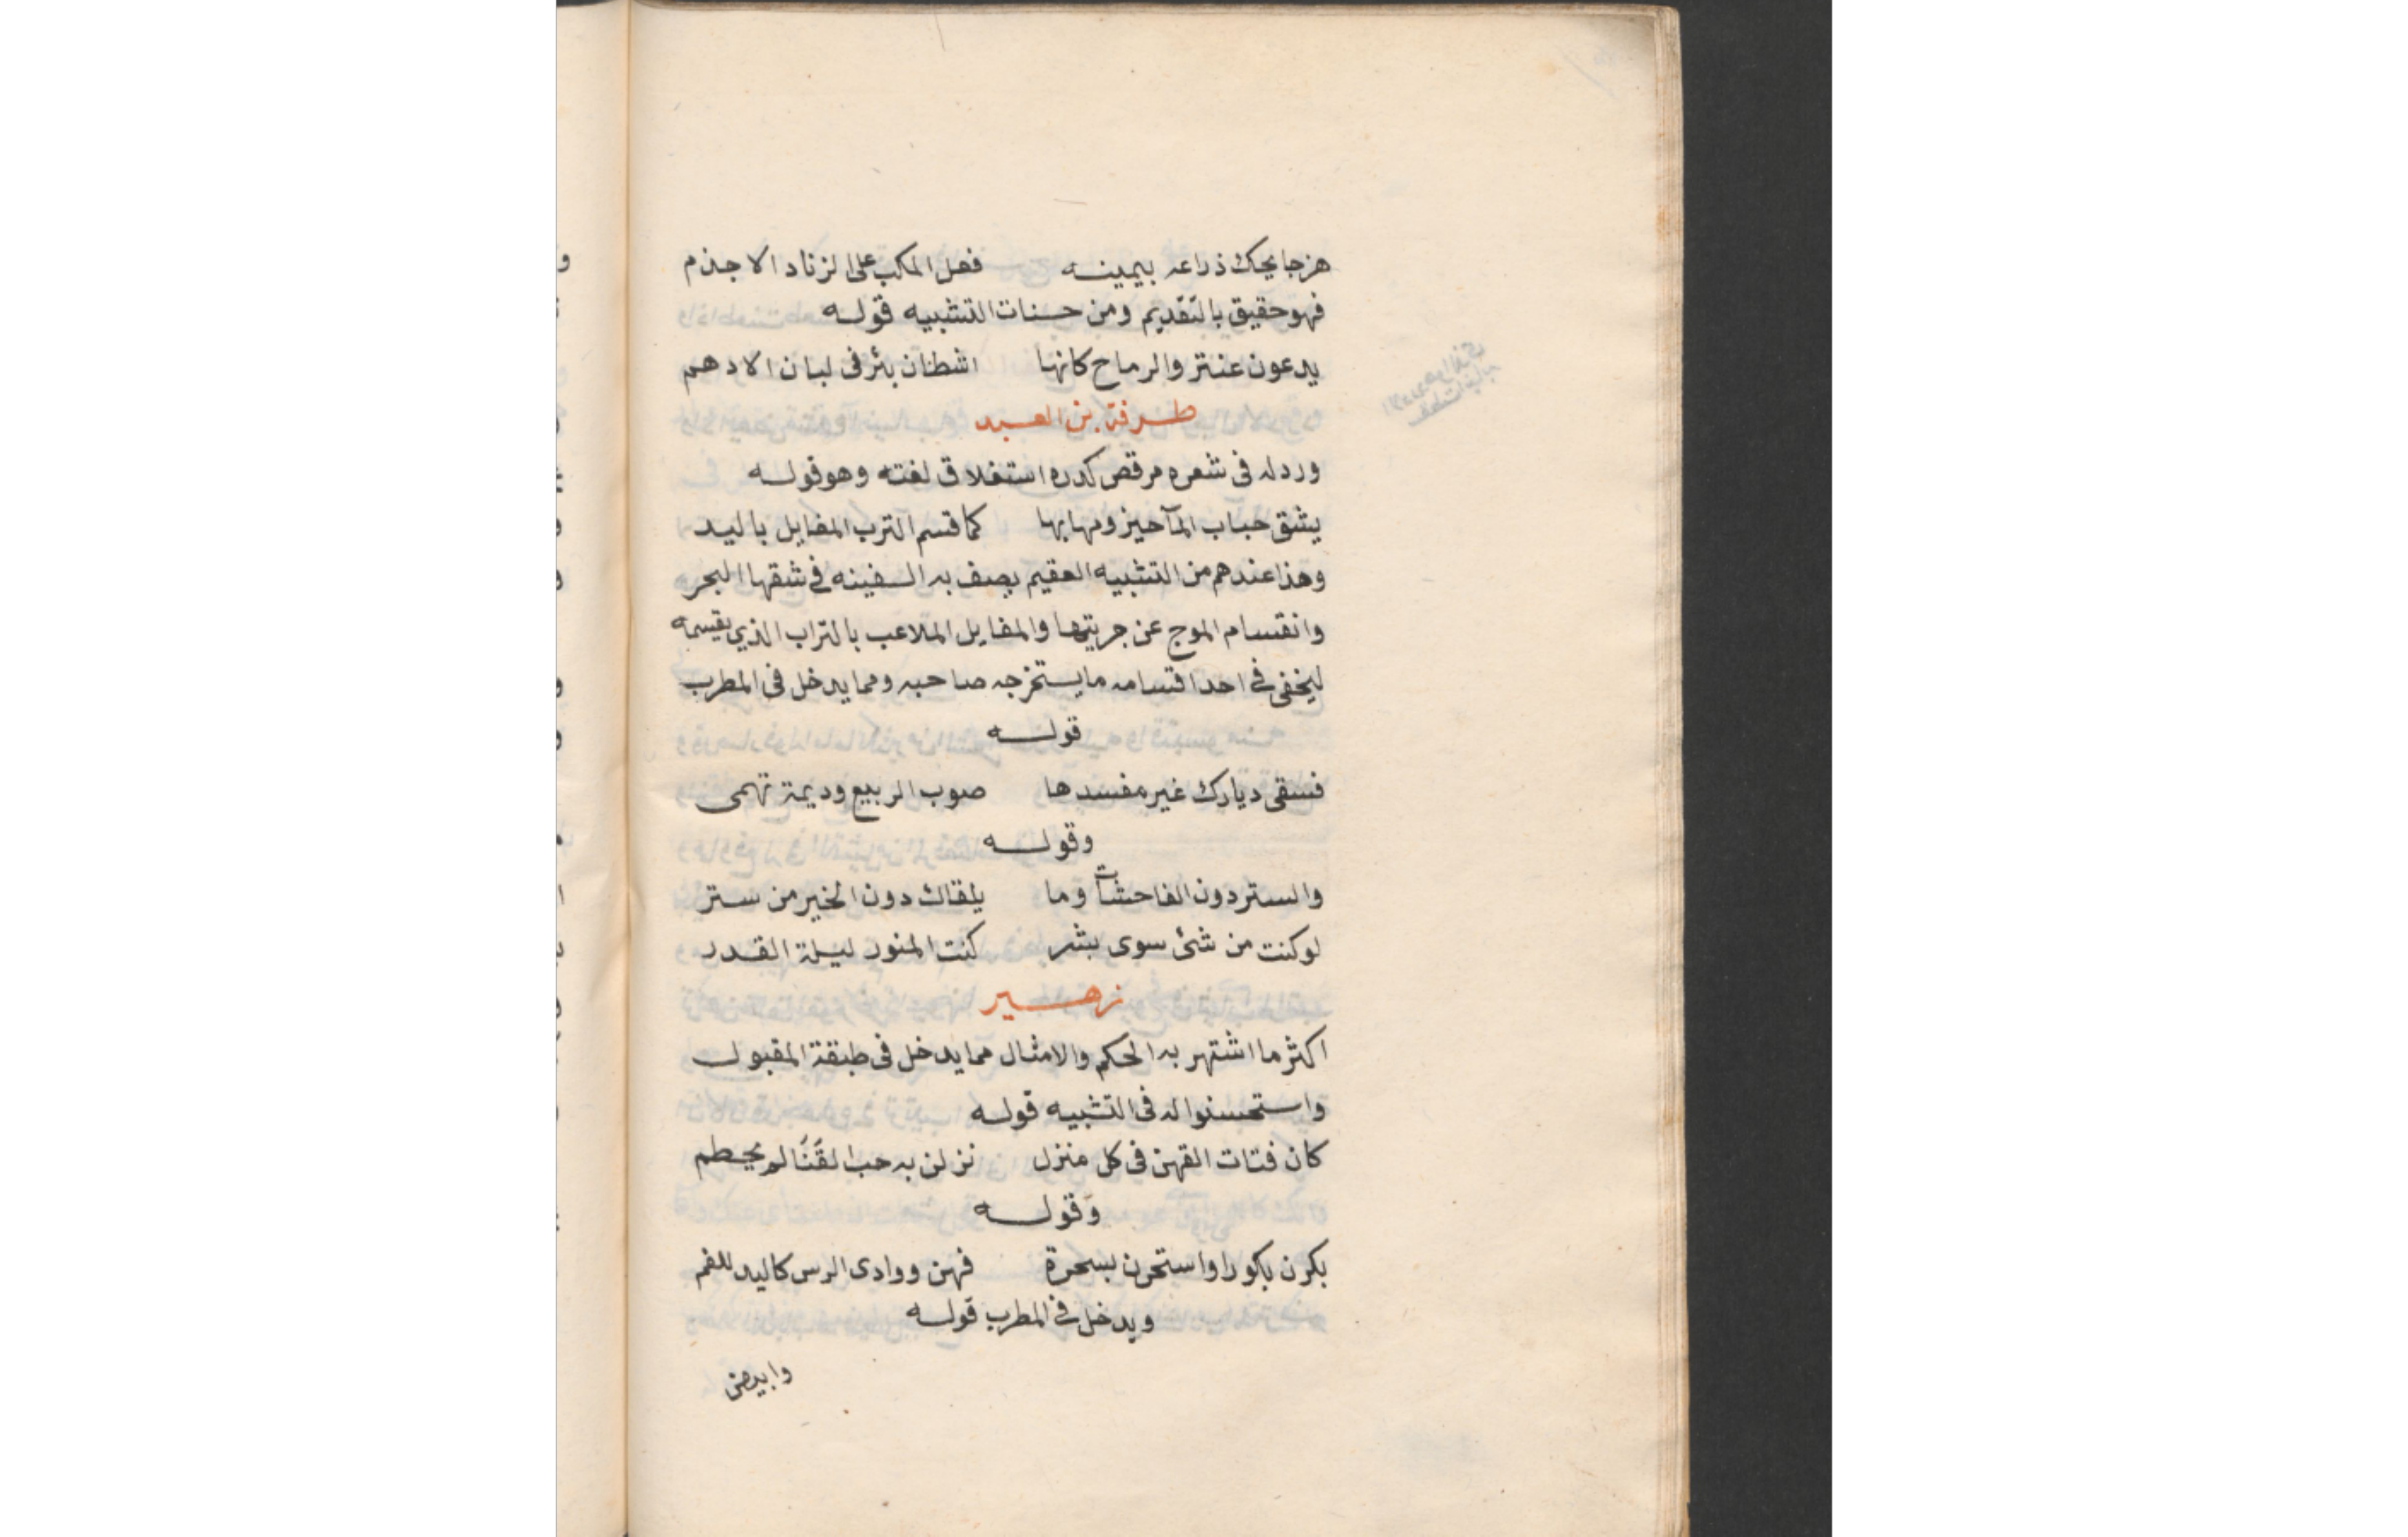 هزجا يحك ذراعه بيمينه فعل المكب على الزناد الاجذم
فهو حقيق بالتقديم ومن حسنات التشبيه قوله
يدعون عنتر والرماح كانها اشطان بئر فى لبان الادهم
طرفة بن العبد
ورد له فى شعره مرقص كدره استغلاق لغته وهو قوله
يشق حباب المآ حيزومها بها كما قسم الترب المفايل باليد
وهذا عندهم من التشبيه العقيم يصف به السفينه في شقها البحر
وانقسام الموج عن جريتها والمفايل الملاعب بالتراب الذي يقسمه
ليخفى في احد اقتسامه ما يستخرجه صاحبه ومما يدخل فى المطرب
قوله
فسقى ديارك غير مفسدها صوب الربيع وديمة تهمى
وقوله
والستر دون الفاحشات وما يلقاك دون الخير من ستر
لو كنت من شئ سوى بشر كنت المنور ليلة القدر
زهير
اكثر ما اشتهر به الحكم والامثال مما يدخل فى طبقة المقبول
واستحسنوا له فى التشبيه قوله
كان فتات القهن فى كل منزل نزلن به حب القَنَا لم يحطم
وَقوله
بكرن بكورا واستحرن بسحرة فهن ووادى الرس كاليد للفم
ويدخل في المطرب قوله
وابيض